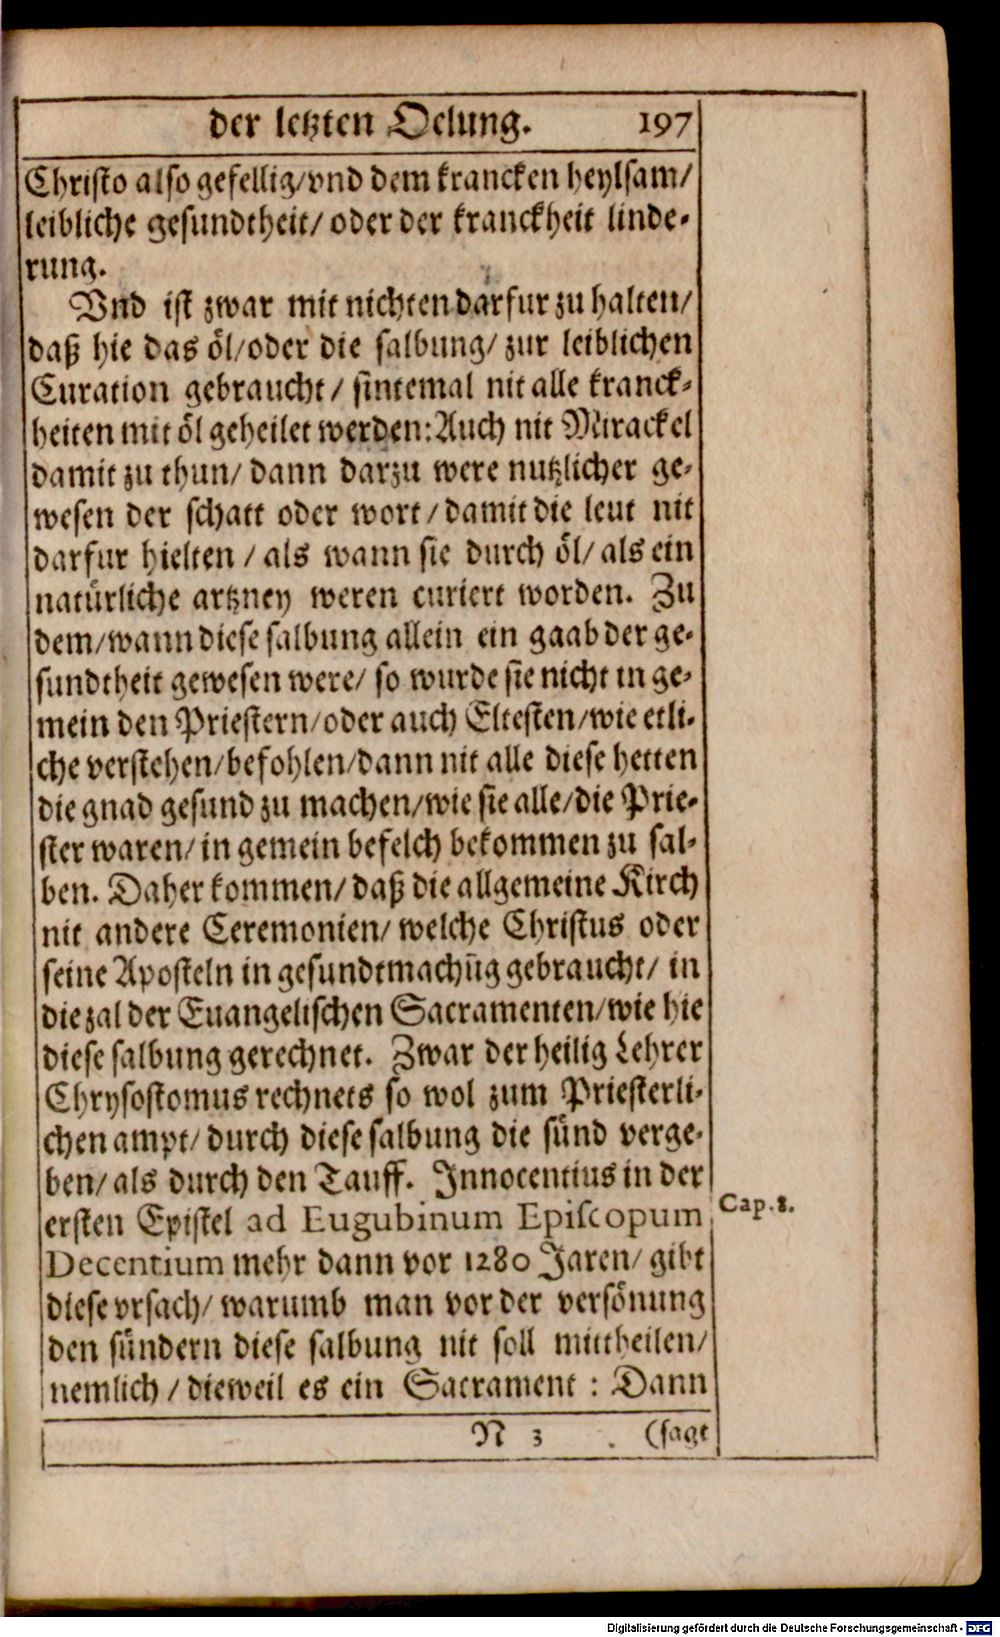 der letzten Oelung. 197
Christo also gefellig/vnd dem krancken heylsam/
leibliche gesundtheit/ oder der kranckheit linde-
rung.
Vnd ist zwar mit nichten darfur zu halten/
daß hie das öl/oder die salbung/ zur leiblichen
Curation gebraucht/ sintemal nit alle kranck-
heiten mit öl geheilet werden: Auch nit Mirackel
damit zu thun/ dann darzu were nutzlicher ge-
wesen der schatt oder wort/ damit die leut nit
darfur hielten / als wann sie durch öl/ als ein
natürliche artzney weren curiert worden. Zu
dem/wann diese salbung allein ein gaab der ge-
sundtheit gewesen were/ so wurde sie nicht in ge-
mein den Priestern/oder auch Eltesten/wie etli-
che verstehen/befohlen/dann nit alle diese hetten
die gnad gesund zu machen/wie sie alle/die Prie-
ster waren/ in gemein befelch bekommen zu sal-
ben. Daher kommen/ daß die allgemeine Kirch
nit andere Ceremonien/ welche Christus oder
seine Aposteln in gesundtmachūg gebraucht/ in
die zal der Euangelischen Sacramenten/wie hie
diese salbung gerechnet. Zwar der heilig Lehrer
Chrysostomus rechnets so wol zum Priesterli-
chen ampt/ durch diese salbung die sünd verge-
ben/ als durch den Tauff. Innocentius in der
ersten Epistel ad Eugubinum Episcopum
Cap. 8.
Decentium mehr dann vor 1280 Jaren/ gibt
diese vrsach/ warumb man vor der versönung
den sündern diese salbung nit soll mittheilen/
nemlich / dieweil es ein Sacrament : Dann
N 3 (sagt
Digitalisierung gefördert durch die Deutsche Forschungsgemeinschaft - DFG